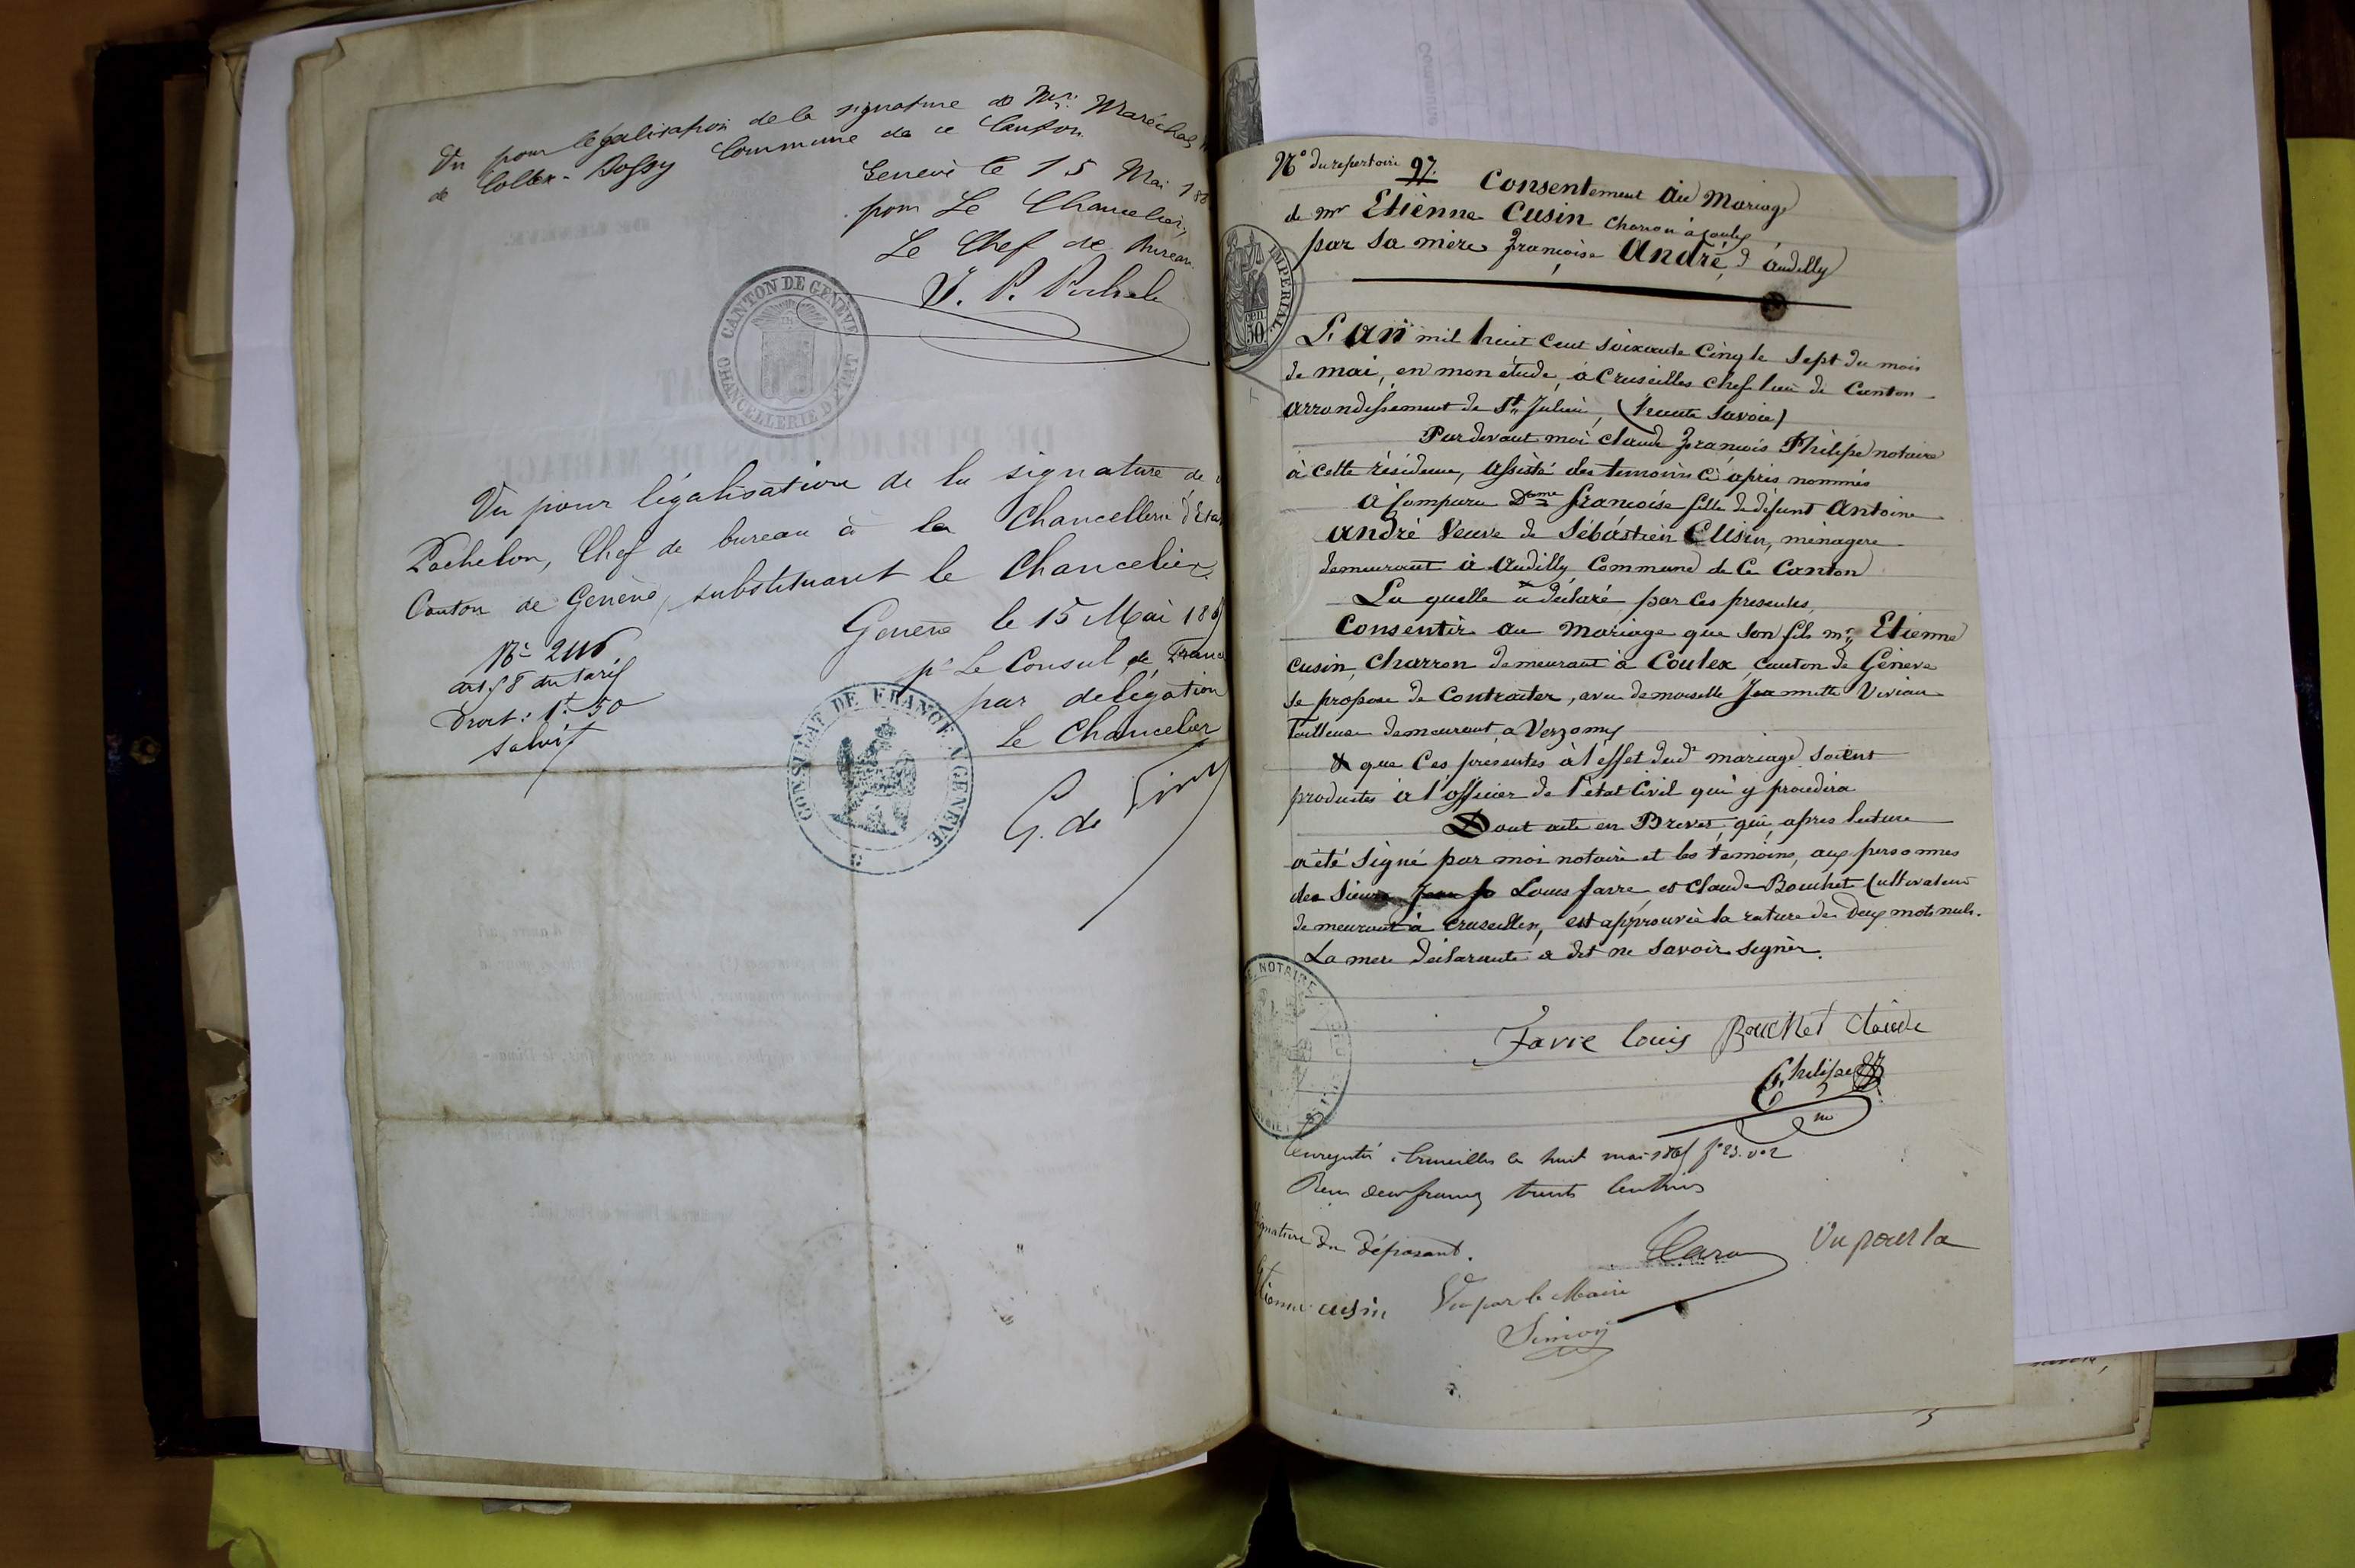 Vu pour légalisation de la signature de Mr. Maréchal
de Collex-Bossy Commune de ce Canton
Genève le 15 Mai 18
pour Le Chancelier,
Le Chef de bureau
CANTON DE GENÈVE
CHANCELLERIE D'ÉTAT
Vu pour légalisation de la signature de
Pachelon, Chef de bureau à la Chancellerie d'Etat
Canton de Genève, substituant le Chancelier.
Genève le 15 Mai 186
pr Le Consul de France
par délégation
Le Chancelier
G. de
art 58 du tarif
Droit: 1f. 50
CONSULAT DE FRANCE A GENÈVE
No du repertoire 97.
Consentement au Mariage
de mr Etiènne Cusin Charron à
par sa mère françoise André, d'Andilly
IMPERIAL
50
cen
L'An mil huit Cent Soixante Cinq le Sept du mois
de mai, en mon étude, à Cruseilles chef lieu de Canton
arrondissement de St Julien, (haute Savoie)
Pardevant moi claude françois Philipe notaire
à cette résidence, assisté des temoins ci après nommés
a Comparu Dame francoise fille de défunt Antoine
André Veuve de Sébastien Cusin, ménagere
demeurant à Andilly Commune de Ce Canton
La quelle a déclaré par ces presentes,
Consentir au Mariage que Son fils mr Etienne
Cusin, Charron demeurant à Coulex, canton de Génève
Se propose de Contracter, avec demoiselle Jeannette Vivian
Tailleuse demeurant a Verzomy
& que Ces présentes à l'éffet dud' mariage soient
produites à l'officier de l'état Civil qui y procèdera
Dont acte en Brevet, qui, après lecture
a été Signé par moi notaire et les témoins, aux personnes
des Sieurs Louis favre et Claude Bouchet Cultivateurs
demeurant à Cruseilles, est approuvée la rature de Deux mots nuls.
La mère déclarante a dit ne Savoir Signer.
NOTAIRE
Favre louis Bouchet Claude
Philipe
Enregistré à Cruseilles le huit mai 1865 fo 23. vo 2
Reçu deux francs trente centimes
Signature du déposant.
Vu pour la
Etienne cusin
Vu par le Maire
Simon